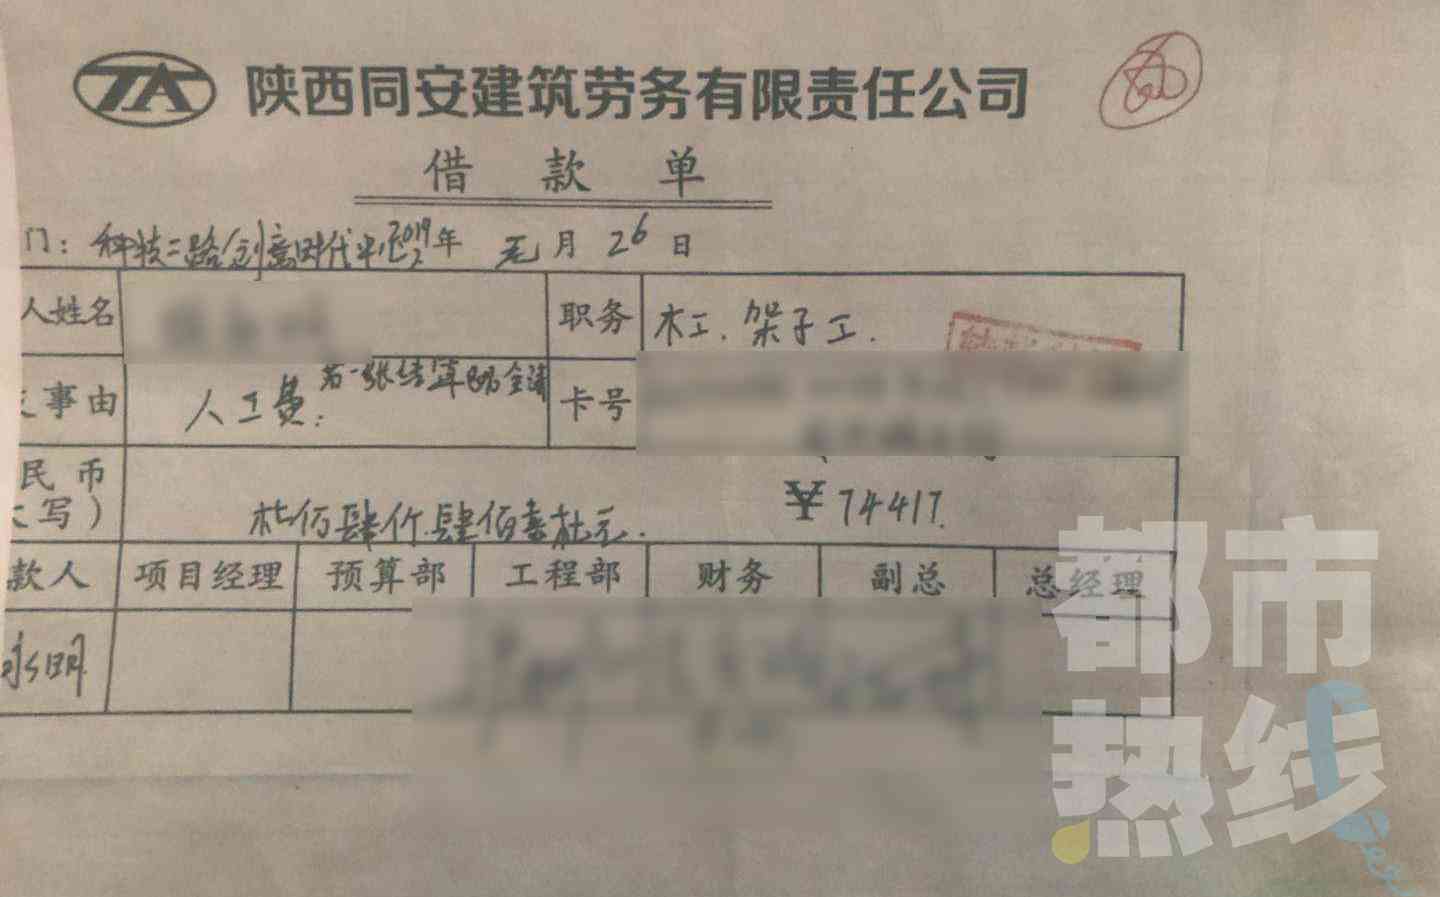 TA 陕西同安建筑劳务有限责任公司
借款单
门：科技二路创意时代中心 2019年 元月26日
人姓名 职务 木工．架子工．
事由 人工费： 另一张结算 卡号
民币
写） 柒佰肆仟肆佰 柒元． ¥74417.
款人 项目经理 预算部 工程部 财务 副总 总经理
永明
都市
热线